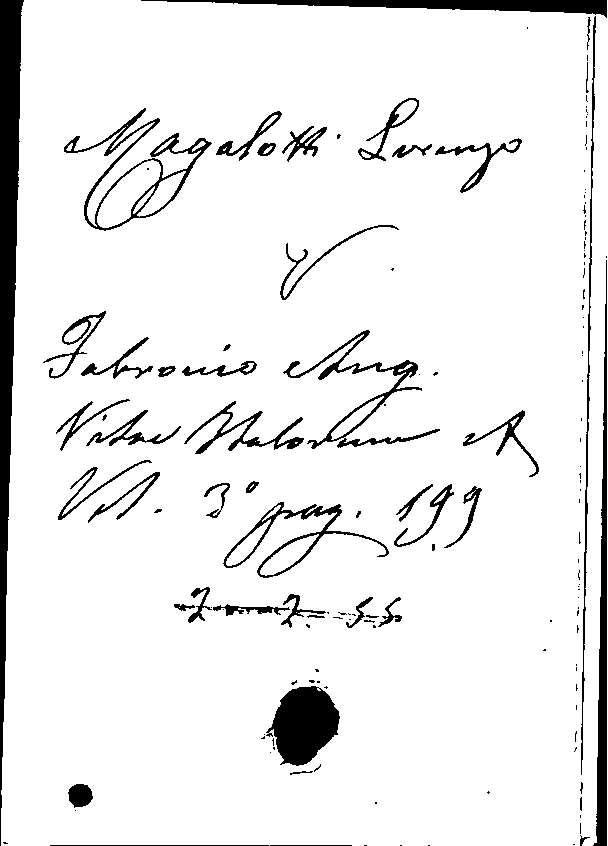 Magalotti Lorenzo
V.
Fabronio Ang.
Vitae Italorum
Vol. 3º pag. 199
2 2. 55